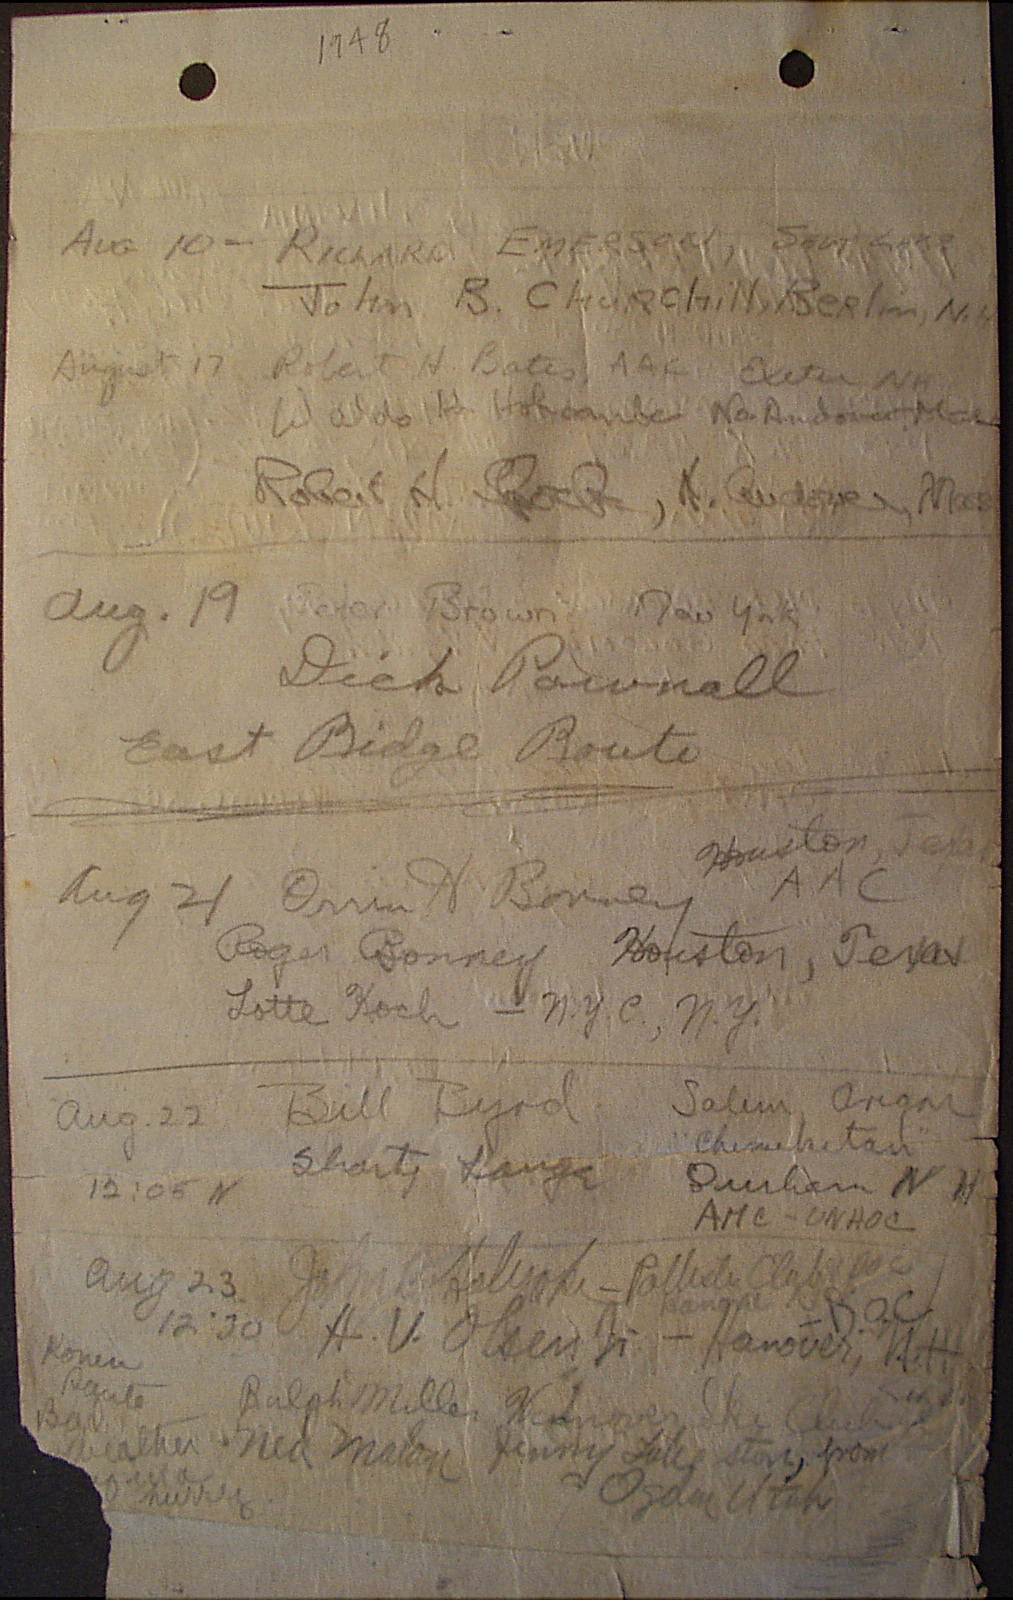 1948
Aug 10 - Richard Emerson, Salt Lake
John B. Churchill, Berlin, N.H.
August 17 Robert H. Bates, AAC Exeter NH
Waldo H Holcombe No. Andover Mass
Robert H. , N. Andover, Mass
Aug. 19 Peter Brown New York
Dick Pownall
East Ridge Route
Houston, Texas
Aug 21 Orrin H Bonney AAC
Roger Bonney Houston, Texas
Lotte Koch - N.Y.C., N.Y.
Aug. 22 Bill Byrd Salem, Oregon
"Chemeketan"
Shorty Lange Durham N H
12:05 N
AMC - UNHOC
Aug 23 John
12:30 H. V. Olsen Jr. - Hanover, N.H.
Route Ralph Miller Hanover
Bad
weather Ned from
hurry Ogden Utah